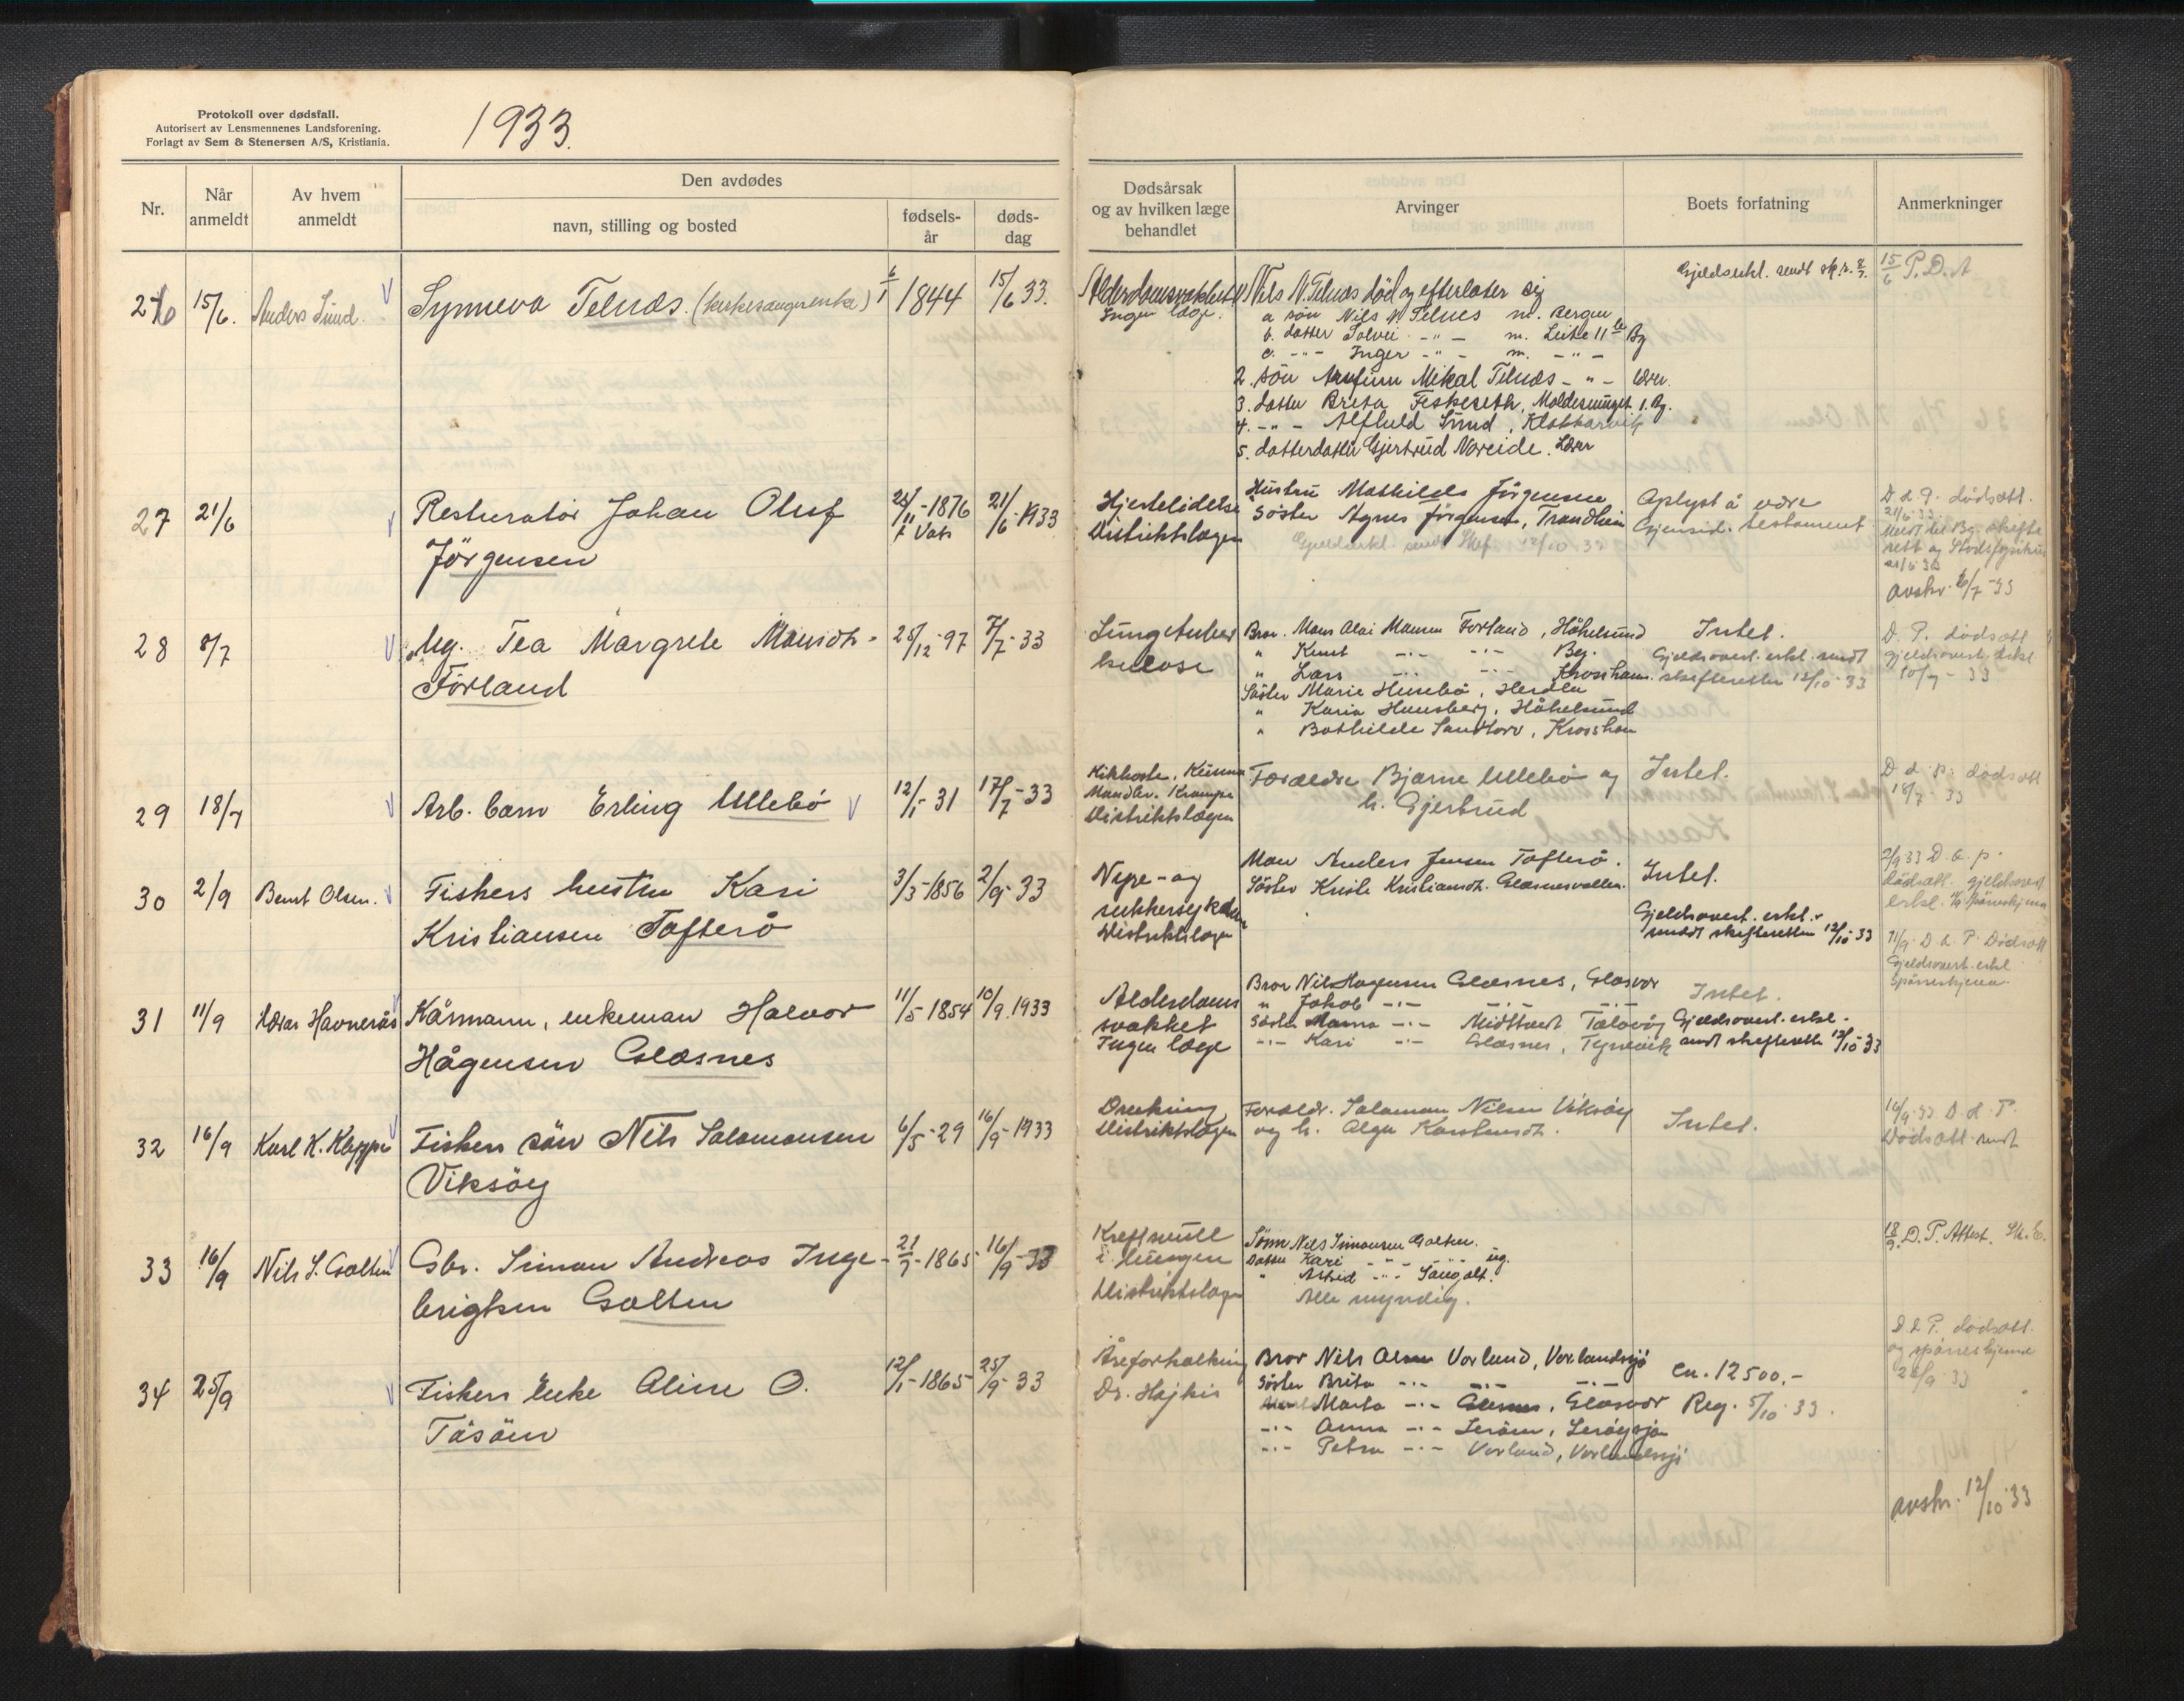 Protokoll over dødsfall.
Autorisert av Lensmennenes Landsforening.
Forlagt av Sem & Stenersen A/S, Kristiania.
1933.
Nr.
Når anmeldt
Av hvem anmeldt
Den avdødes
navn, stilling og bosted
fødsels-år
døds-dag
Dødsårsak og av hvilken læge behandlet
Arvinger
Boets forfatning
Anmerkninger
26 15/6. Anders Sund. Synneva Telnæs. (kirkesangerenke) 6/1 1844 15/6 33.
Alderdomsvakhet
Ingen læge.
1) Nils N. Telnæs död og efterlater sig
a sön Nils N. Telnes m. Bergen
b. datter Solvei -"- m. Leite 11 Bg
c. -"- Inger -"- m. -"-
2. sön Arnfinn Mikal Telnæs -"-
3. datter Brita Fiskeseth, Moldesmuget 1. Bg.
4. -"- Alfhild Sund, Klokkarvik
5. datterdatter Gjertrud Noreide.
Gjeldserkl. sendt sk.r. 8/7.
15/6 P.D.A
27 21/6 Resturatör Johan Oluf
Jörgensen
24/11-1876 21/6-1933
7 Vats
Hjertelidelse
Distriktslægen
Hustru Mathilde Jörgensen
Söster Agnes Jörgensen, Trondheim
Opplyst å være
Gjensid. testament
D. d. P. dödsatt.
21/6 33.
Meldt til Bg. skifte
rett og Stadsfysikus
21/6 33
avskr. 6/7-33
28 8/7 Ug. Tea Margrete Monsdtr.
Förland
25/12-97 7/7-33
Lungetuber
kulose
Bror. Mons Olai Monsen Forland, Håkelsund
" Knut -"- -"- Bg.
" Lars -"- -"- Krosshavn.
Söster Marie Husebö, Herdla
" Karia Hunsberg, Håkelsund
" Bothilde Sandtorv, Krosshavn
Intet.
Gjeldsovert. erkl. sendt
skifteretten 12/10-33
D. P. dödsatt
gjeldsovert. erkl
10/7-33
29 18/7 Arb. barn Erling Ullebö 12/1-31 17/7-33
Kikhoste,
Krampe
Distriktslægen
Forældre Bjarne Ullebö og
h. Gjertrud
Intet.
D. d. p. dödsatt
18/7-33
30 2/9 Bernt Olsen. Fiskers hustru Kari
Kristiansen Tofterö
3/3-1856 2/9-33
Nyre- og
sukkersykdom
Distriktslæge
Man Anders Jensen Tofterö.
Söster Kristi Kristiansdtr. Glæsnesvallen.
Intet.
Gjeldsovert. erkl.
sendt skifteretten 12/10-33
2/9 33 D. d. p.
dödsatt. gjeldsovert
erkl. Spörreskjema
31 11/9 Havnerås Kårmann, enkeman Halvor
Hågensen Glæsnes
11/5-1854 10/9 1933
Alderdoms
svakhet
Ingen læge
Bror Nils Hagensen Glæsnes, Glæsvær
" Jakob -"- -"- -"-
Söster Marna -"- Midttveit Telavåg
-"- Kari -"- Glæsnes, Tyssevik
Intet.
Gjeldsovert. erkl.
sendt skifteretten 12/10-33
11/9 D. d. P. Dödsatt
Gjeldsovert. erkl
Spörreskjema.
32 16/9 Karl K. Kappe Fiskers sön Nils Salamonsen
Viksöy
6/5-29 16/9-1933
Drukning
Distriktslægen
Foreldr. Salamon Nilsen Viksöy
og h. Olga Karstensdtr.
Intet.
16/9 33 D. d. P.
Dödsatt. sendt
33 16/9 Nils S. Golten Gbr. Simon Andreas Inge-
brigtsen Golten
21/7-1865 16/9-33
Kreftsvull
i lungen
Distriktslægen
Sönn Nils Simonsen Golten.
Datter Kari -"- -"- ug.
" Astrid -"- Sangolt.
Alle myndig.
18/9. D. P. Attest.
34 25/9 Fiskers Enke Aline O.
Tösöen
12/1-1865 25/9-33
Åreforkalkning
Dr.
Bror Nils Olsen Vorland, Vorlandsjö
Söster Brita -"- -"- -"-
Marta -"- Glesnes, Glæsvær
-"- Anna -"- Leröen, Leröysjön
-"- Petra -"- Vorland, Vorlandsjö
ca. 12500.-
Reg. 5/10 33.
D. d. P. dödsatt.
og spörreskjema
26/9 33
avskr. 12/10 33